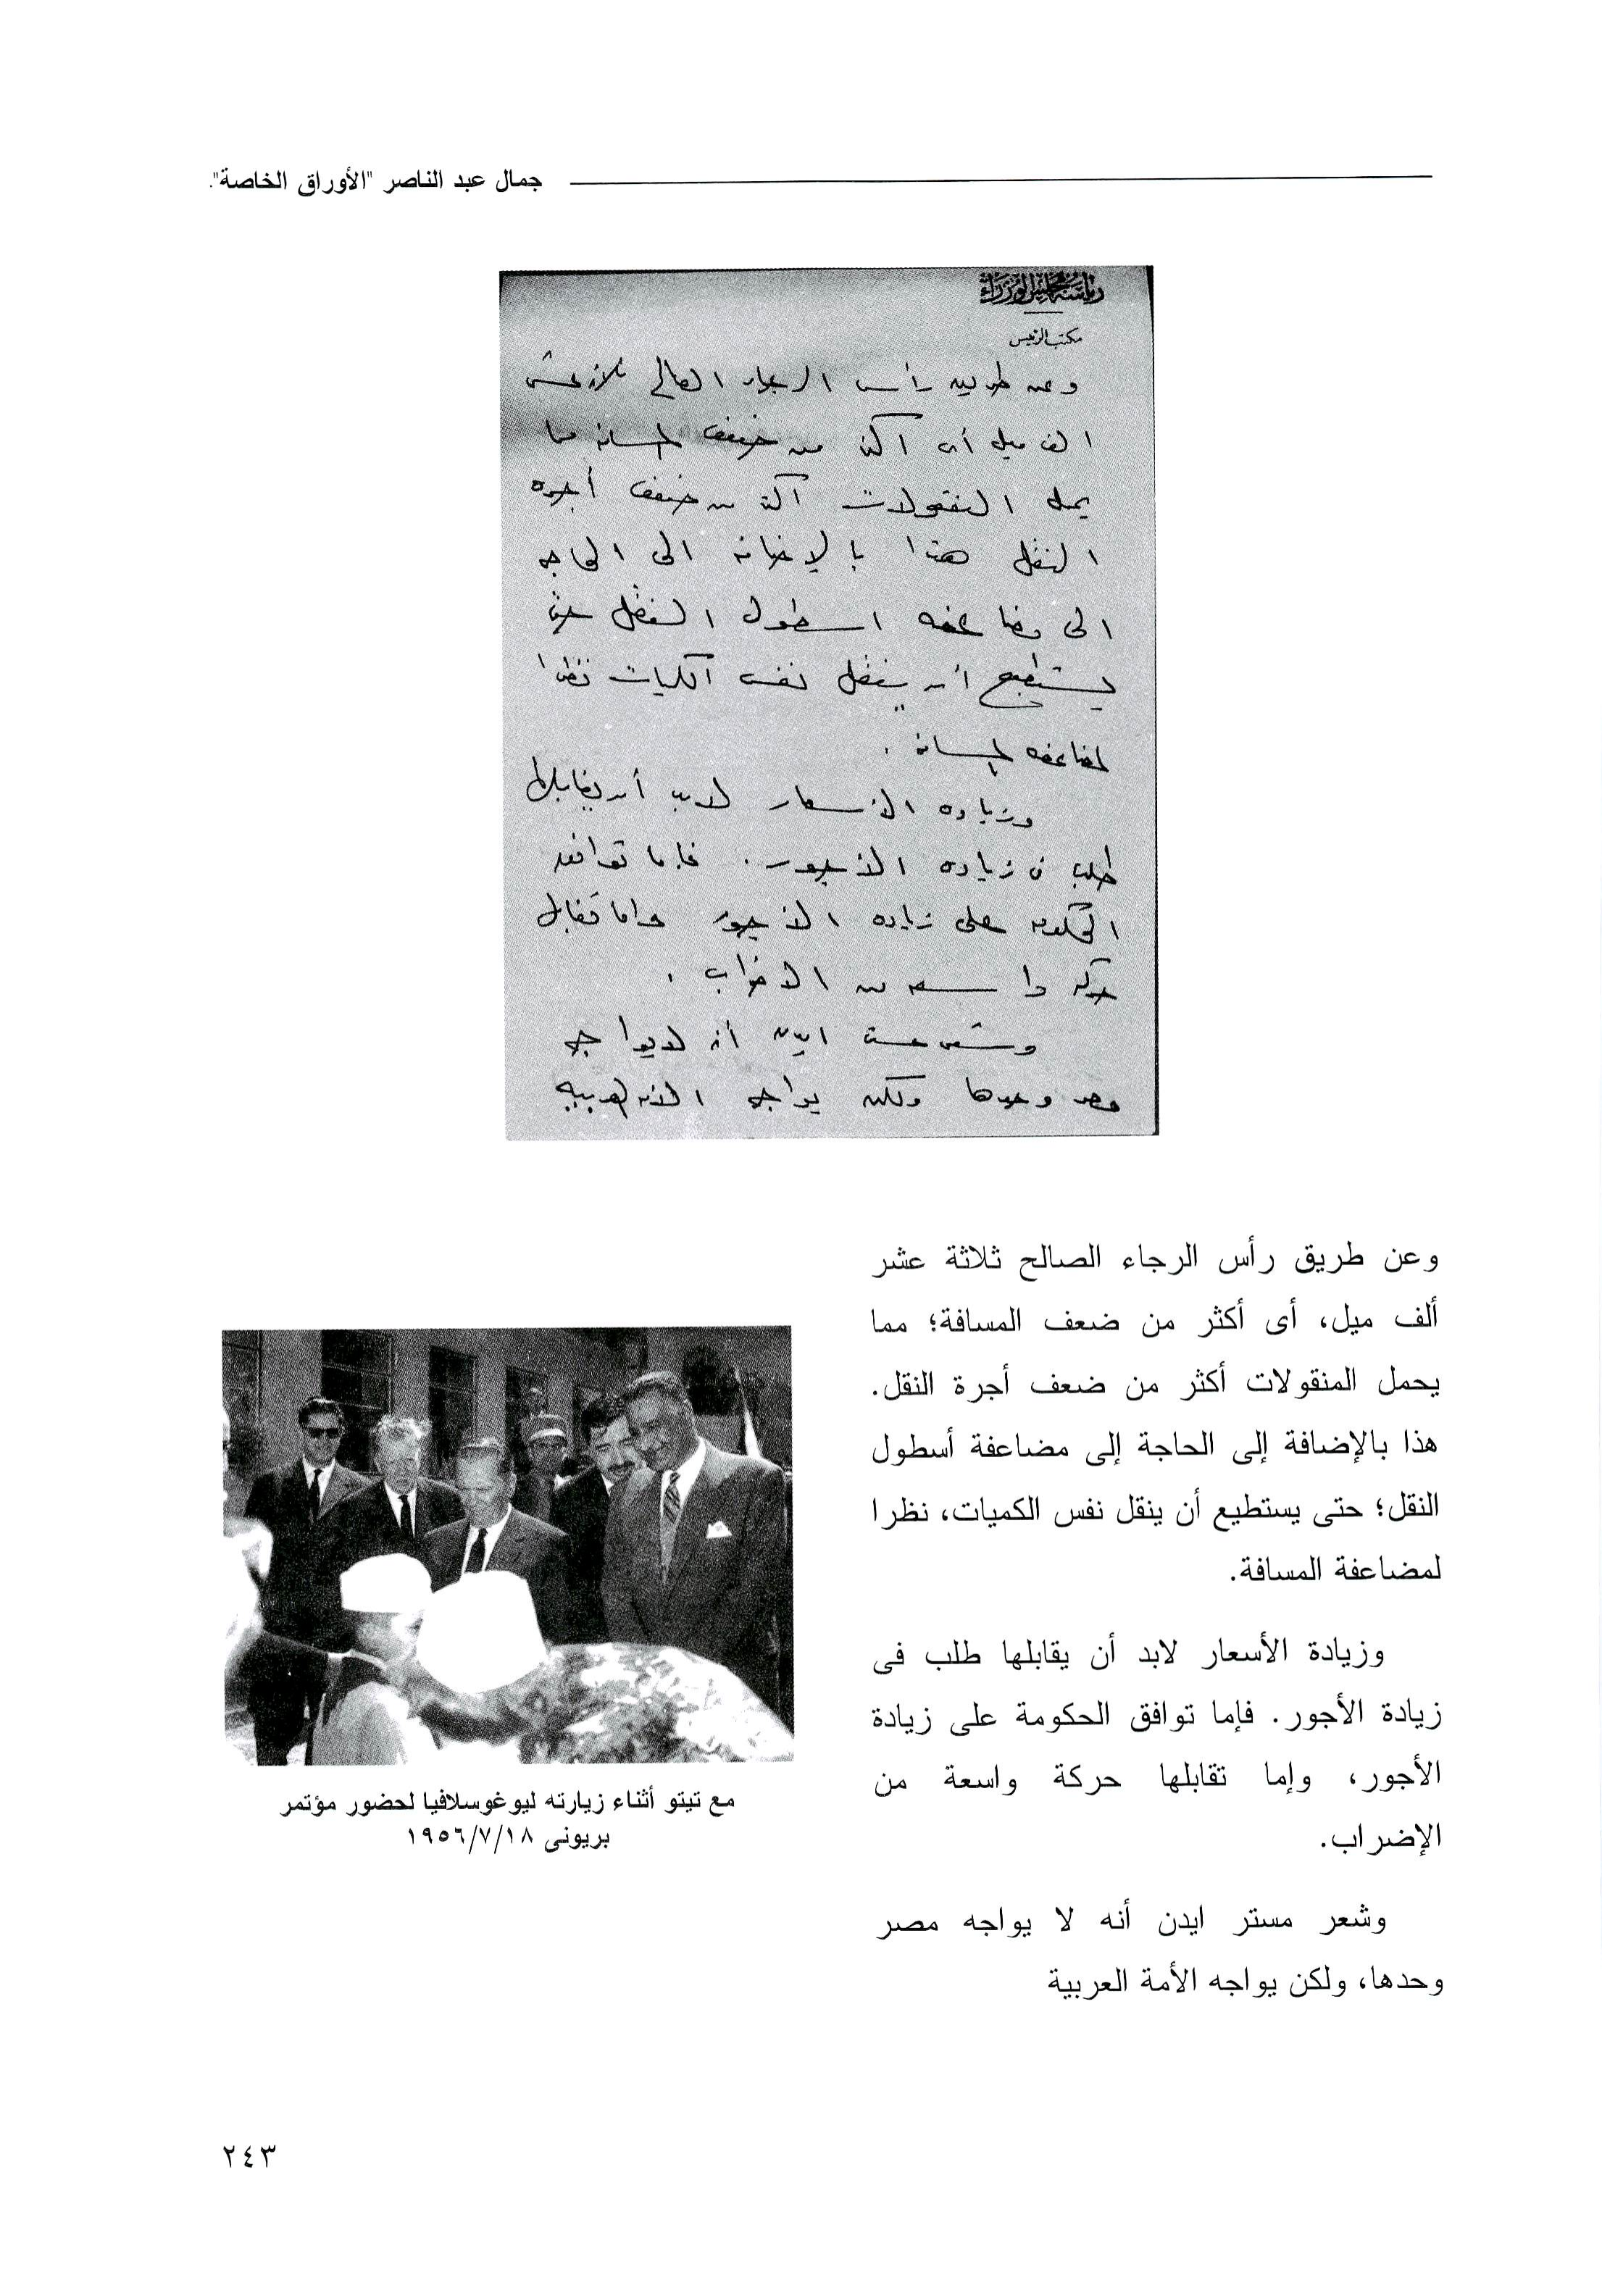 جمال عبد الناصر "الأوراق الخاصة".
رياسة مجلس الوزراء
مكتب الرئيس
وعن طريق رأس الرجاء الصالح ثلاثة عشر
الف ميل أى أكثر من ضعف المسافه مما
يحمل المنقولات أكثر من ضعف أجره
النقل هذا بالإضافه الى الحاجه
الى مضاعفه اسطول النقل حتى
يستطيع أن ينقل نفس الكميات نظرا
لمضاعفه المسافه .
وزياده الأسعار لابد أن يقابلها
طلب فى زياده الأجور . فإما توافق
الحكومه على زياده الأجور واما تقابل
حركه واسعه من الاضراب .
وشعر مستر ايدن أنه لا يواجه
مصر وحدها ولكن يواجه الأمه العربيه
وعن طريق رأس الرجاء الصالح ثلاثة عشر
ألف ميل، أى أكثر من ضعف المسافة؛ مما
يحمل المنقولات أكثر من ضعف أجرة النقل.
هذا بالإضافة إلى الحاجة إلى مضاعفة أسطول
النقل؛ حتى يستطيع أن ينقل نفس الكميات، نظرا
لمضاعفة المسافة.
وزيادة الأسعار لابد أن يقابلها طلب فى
زيادة الأجور. فإما توافق الحكومة على زيادة
الأجور، وإما تقابلها حركة واسعة من
الإضراب.
وشعر مستر ايدن أنه لا يواجه مصر
وحدها، ولكن يواجه الأمة العربية
مع تيتو أثناء زيارته ليوغوسلافيا لحضور مؤتمر
بريونى ١٩٥٦/٧/١٨
٢٤٣